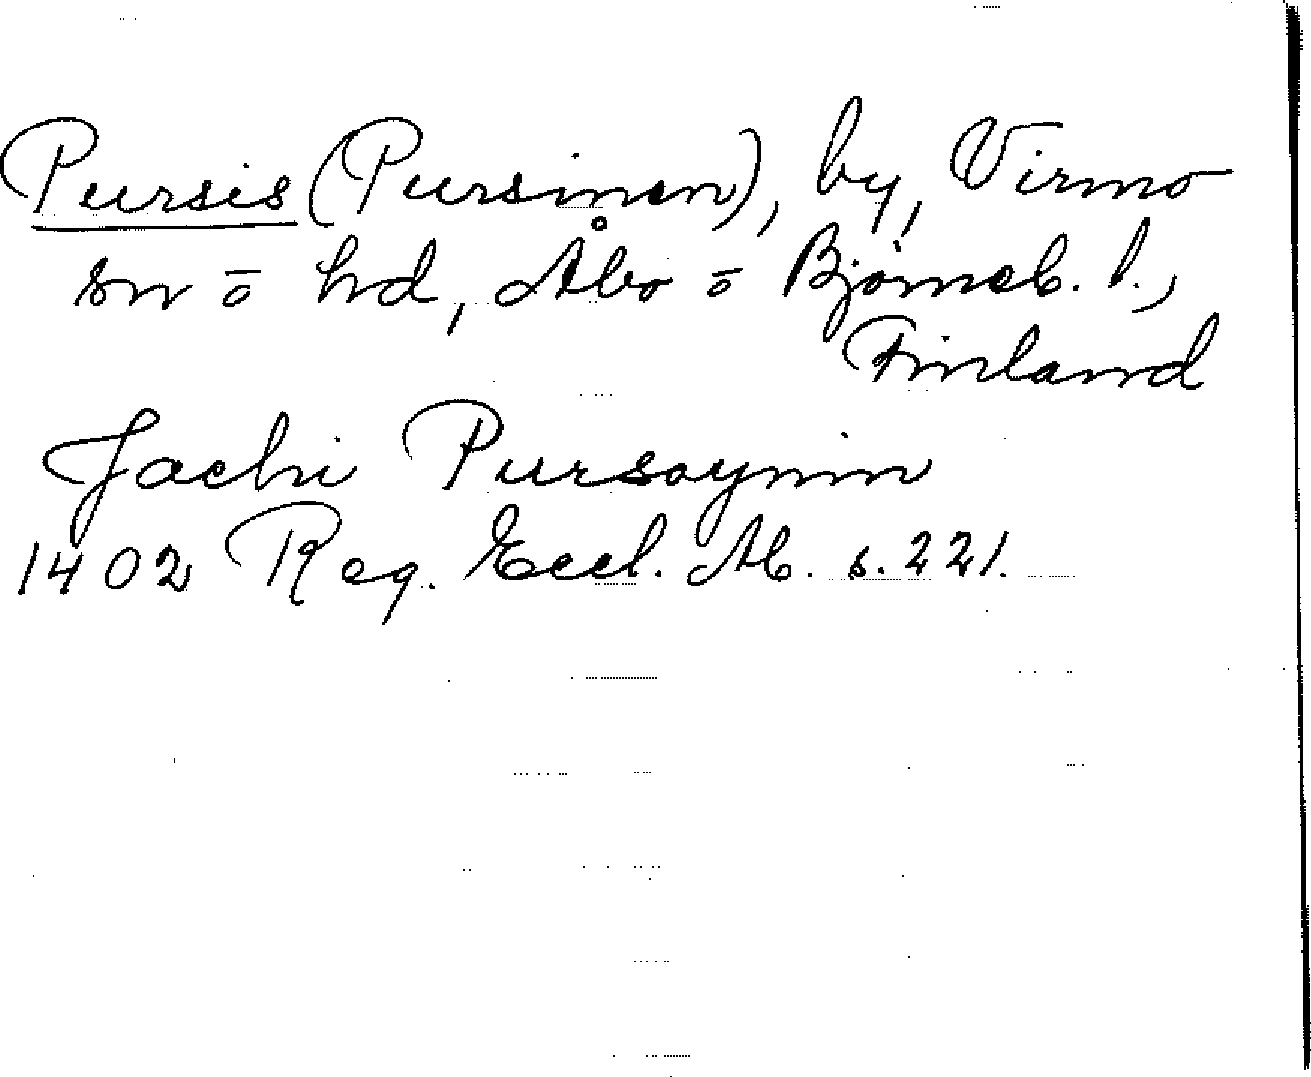 Pursis (Pursinen), by, Virmo
sn ō hd, Åbo ō Björneb. l.,
Finland
Jachi Pursoynin
1402 Reg. Eccl. Ab. s. 221.